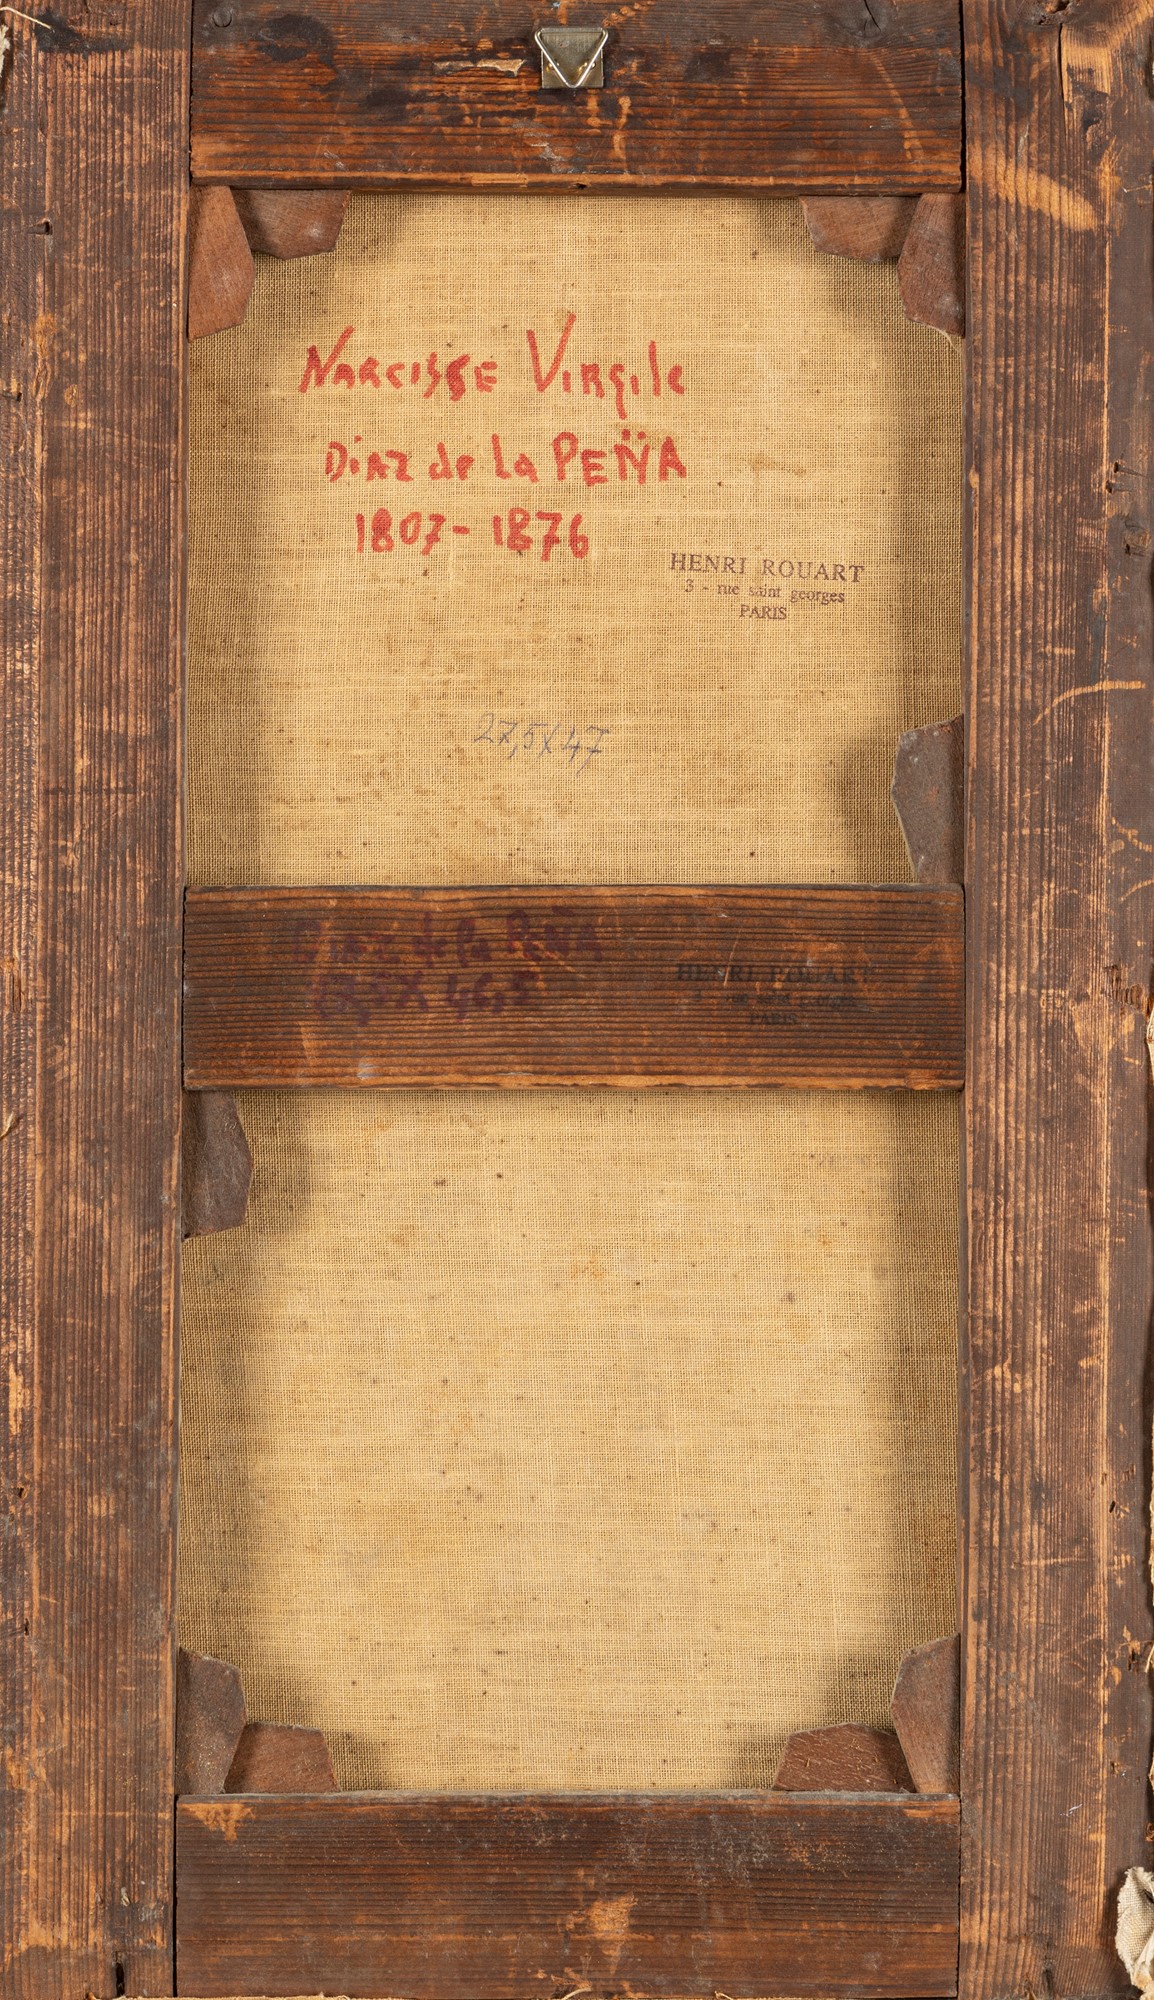 NARCISSE VIRGILE
Diaz de la PEÑA
1807-1876
HENRI ROUART
3 - rue saint georges
PARIS
27,5X47
Diaz de la PEÑA
HENRI ROUART
rue saint georges
PARIS